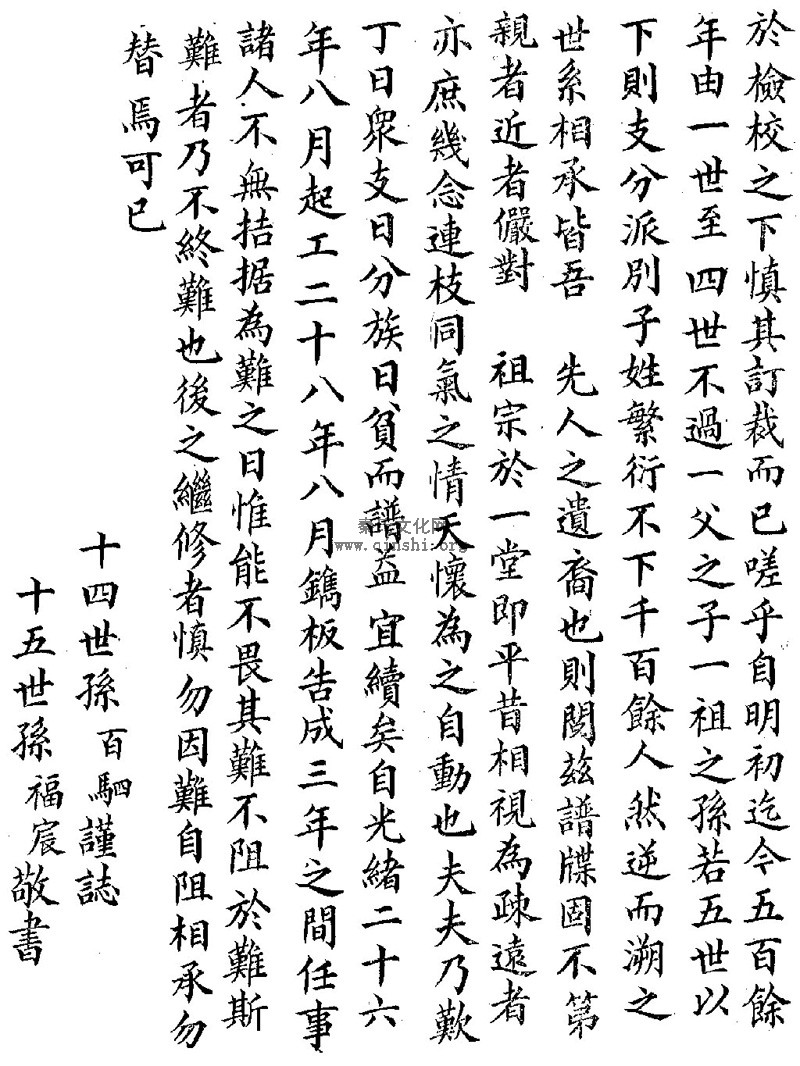 於檢校之下慎其訂裁而已嗟乎自明初迄今五百餘
年由一世至四世不過一父之子一祖之孫若五世以
下則支分派別子姓繁衍不下千百餘人然逆而溯之
世系相承皆吾 先人之遺裔也則閱茲譜牒固不第
親者近者儼對 祖宗於一堂即平昔相視為疎遠者
亦庶幾念連枝同氣之情天懷為之自動也夫夫乃歎
丁日眾支日分族日貧而譜益宜續矣自光緒二十六
年八月起工二十八年八月鐫板告成三年之間任事
諸人不無拮据為難之日惟能不畏其難不阻於難斯
難者乃不終難也後之繼修者慎勿因難自阻相承勿
替焉可已
十四世孫百駟謹誌
十五世孫福宸敬書
秦氏文化网
www.qinshi.org